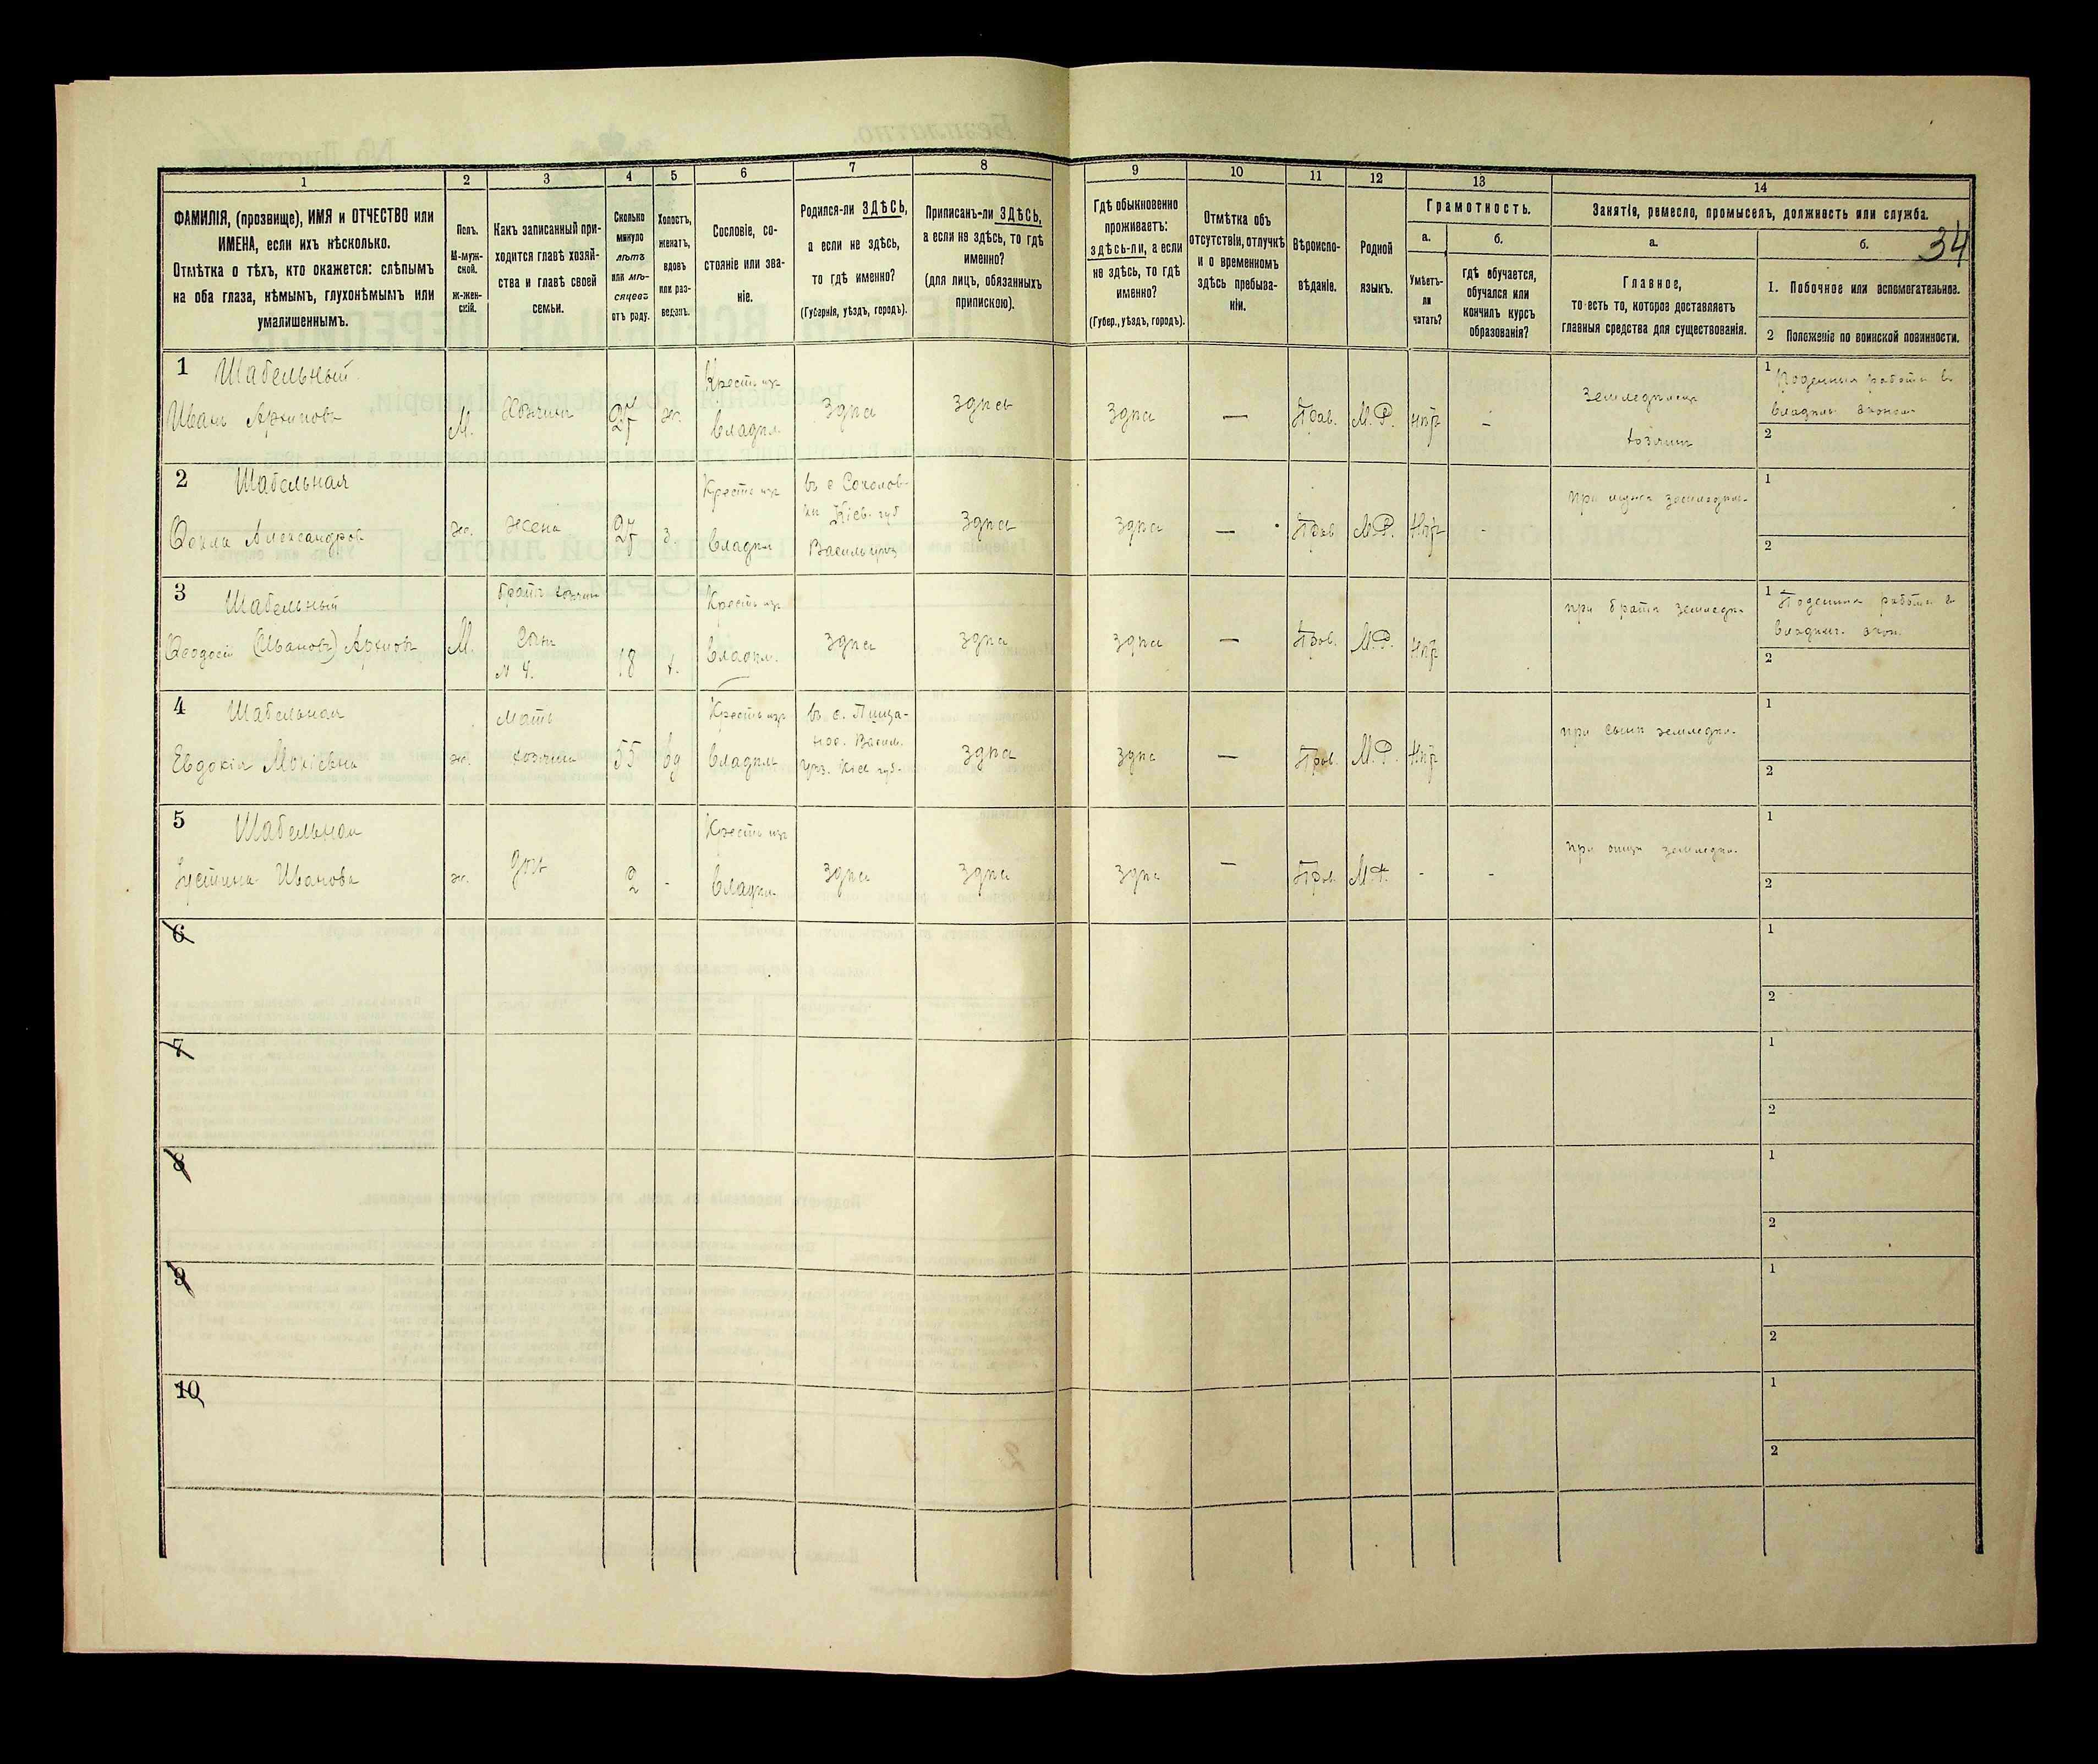 34
1
2
3
4
5
6
7
8
9
10
11
12
13
14
ФАМИЛІЯ, (прозвище), ИМЯ и ОТЧЕСТВО или
ИМЕНА, если ихъ нѣсколько.
Отмѣтка о тѣхъ, кто окажется: слѣпымъ
на оба глаза, нѣмымъ, глухонѣмымъ или
умалишеннымъ.
Полъ.
М-муж-
ской.
ж-жен-
скій.
Какъ записанный при-
ходится главѣ хозяй-
ства и главѣ своей
семьи.
Сколько
минуло
лѣтъ
или мѣ-
сяцевъ
отъ роду.
Холостъ,
женатъ,
вдовъ
или раз-
веденъ.
Сословіе, со-
стояніе или зва-
ніе.
Родился-ли ЗДѢСЬ,
а если не здѣсь,
то гдѣ именно?
(Губернія, уѣздъ, городъ).
Приписанъ-ли ЗДѢСЬ,
а если не здѣсь, то гдѣ
именно?
(для лицъ, обязанныхъ
припискою).
Гдѣ обыкновенно
проживаетъ:
здѣсь-ли, а если
не здѣсь, то гдѣ
именно?
(Губер., уѣздъ, городъ).
Отмѣтка объ
отсутствіи, отлучкѣ
и о временномъ
здѣсь пребыва-
ніи.
Вѣроиспо-
вѣданіе.
Родной
языкъ.
Грамотность.
а.
Умѣетъ-
ли
читать?
б.
гдѣ обучается,
обучался или
кончилъ курсъ
образованія?
Занятіе, ремесло, промыселъ, должность или служба.
а.
Главное,
то-есть то, которое доставляетъ
главныя средства для существованія.
б.
1. Побочное или вспомогательное.
2 Положеніе по воинской повинности.
1 Шабельный
Иванъ Архиповъ
М.
Хозяинъ
27
ж.
Крест. изъ
владѣл.
здѣсь
здѣсь
здѣсь
—
Прав.
М.Р.
Нѣтъ
-
Земледѣлецъ
хозяинъ
1
2
2 Шабельная
Александров
ж.
жена
27
з.
Крест. изъ
владѣл
въ с Соколов-
Кіев. губ
Васильк уѣз
здѣсь
здѣсь
—
Прав
М.Р.
Нѣтъ
-
при мужѣ земледѣл.
1
2
3 Шабельный
Феодосій (Ивановъ) Архипов
М.
братъ хозяина
Сынъ
№ 4.
18
х.
Крест. изъ
владѣл.
здѣсь
здѣсь
здѣсь
—
Прав.
М.Р.
Нѣтъ
при братѣ земледѣл
1
2
4 Шабельная
Евдокія Мокіевна
ж.
мать
хозяина
55
вд
Крест. изъ
владѣл
здѣсь
здѣсь
—
Прав.
М.Р.
Нѣтъ
при сынѣ земледѣл.
1
2
5 Шабельная
Іустина Иванова
ж.
дочь
2
-
Крест. изъ
владѣл
здѣсь
здѣсь
здѣсь
—
Прав
М.Р.
-
-
при отцѣ земледѣл.
1
2
6
1
2
7
1
2
8
1
2
9
1
2
10
1
2